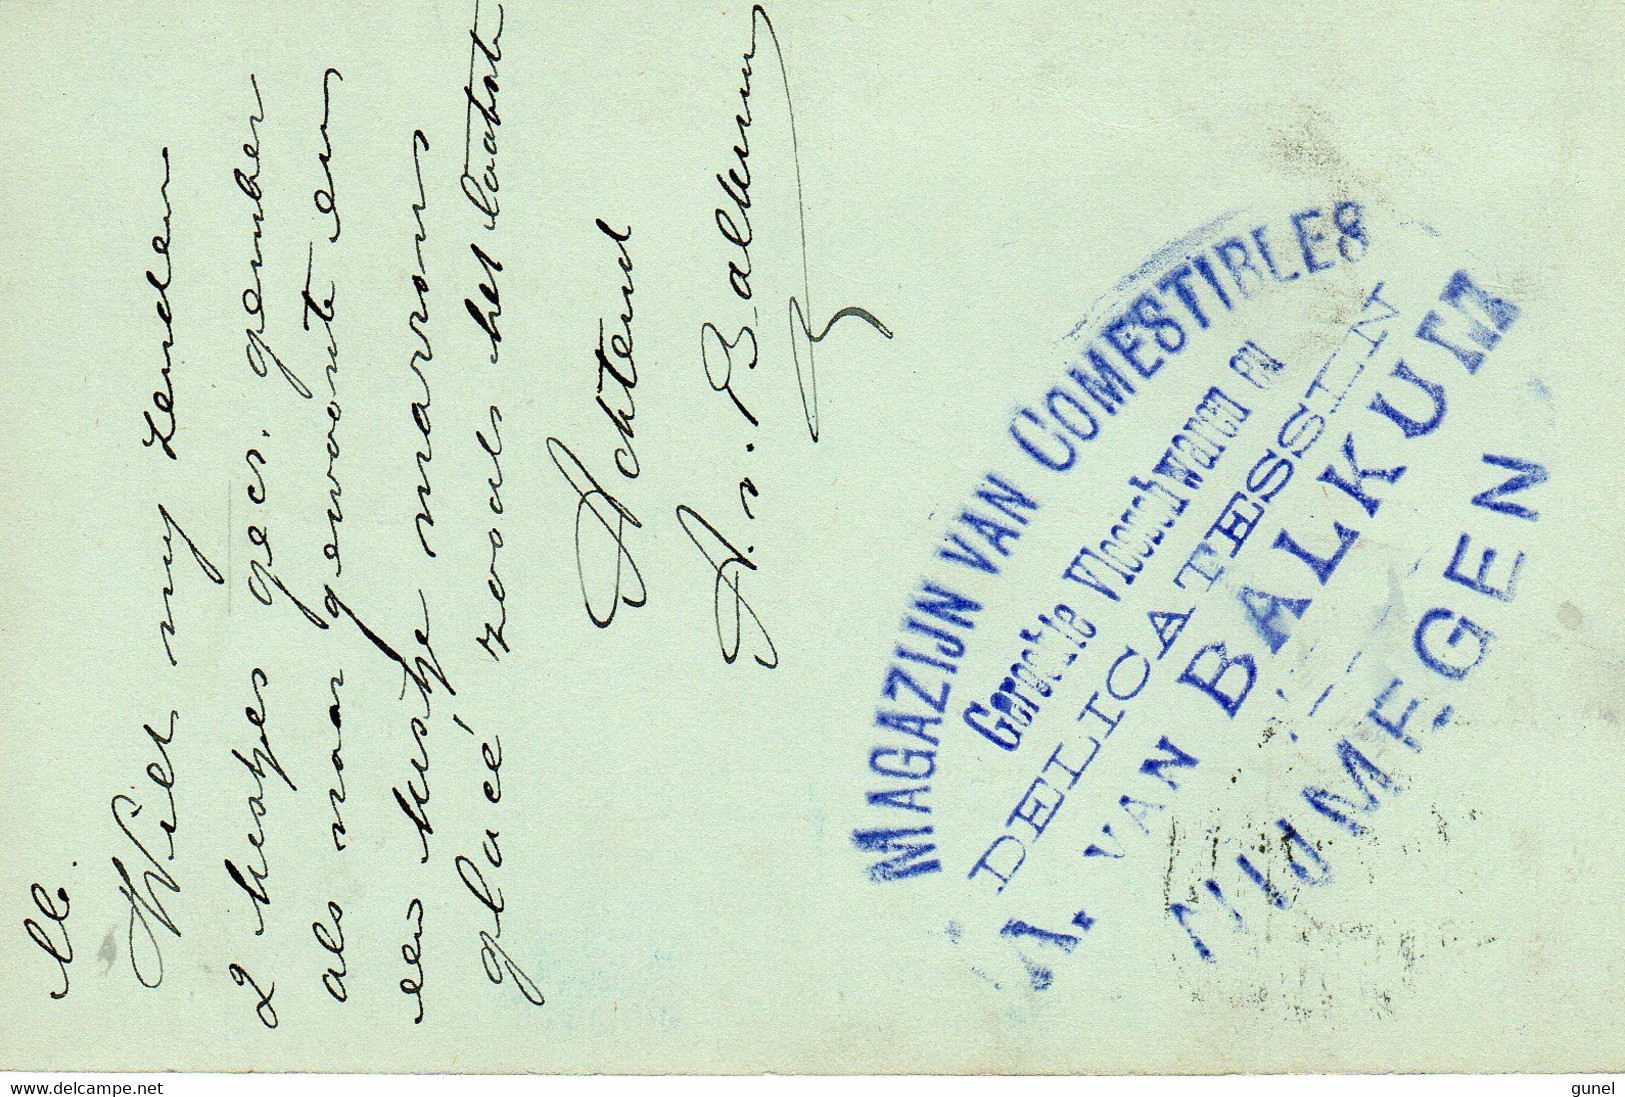 M.
Wilt mij zenden
2 kistjes gec. gember
als naar gewoonte en
een kistje marrons
glacé zooals het laatste
Achtend
A. v. Balkum
MAGAZIJN VAN COMESTIBLES
Gerookte Vleeschwaren en
DELICATESSEN
A. VAN BALKUM
NIJMEGEN
www.delcampe.net
gunel